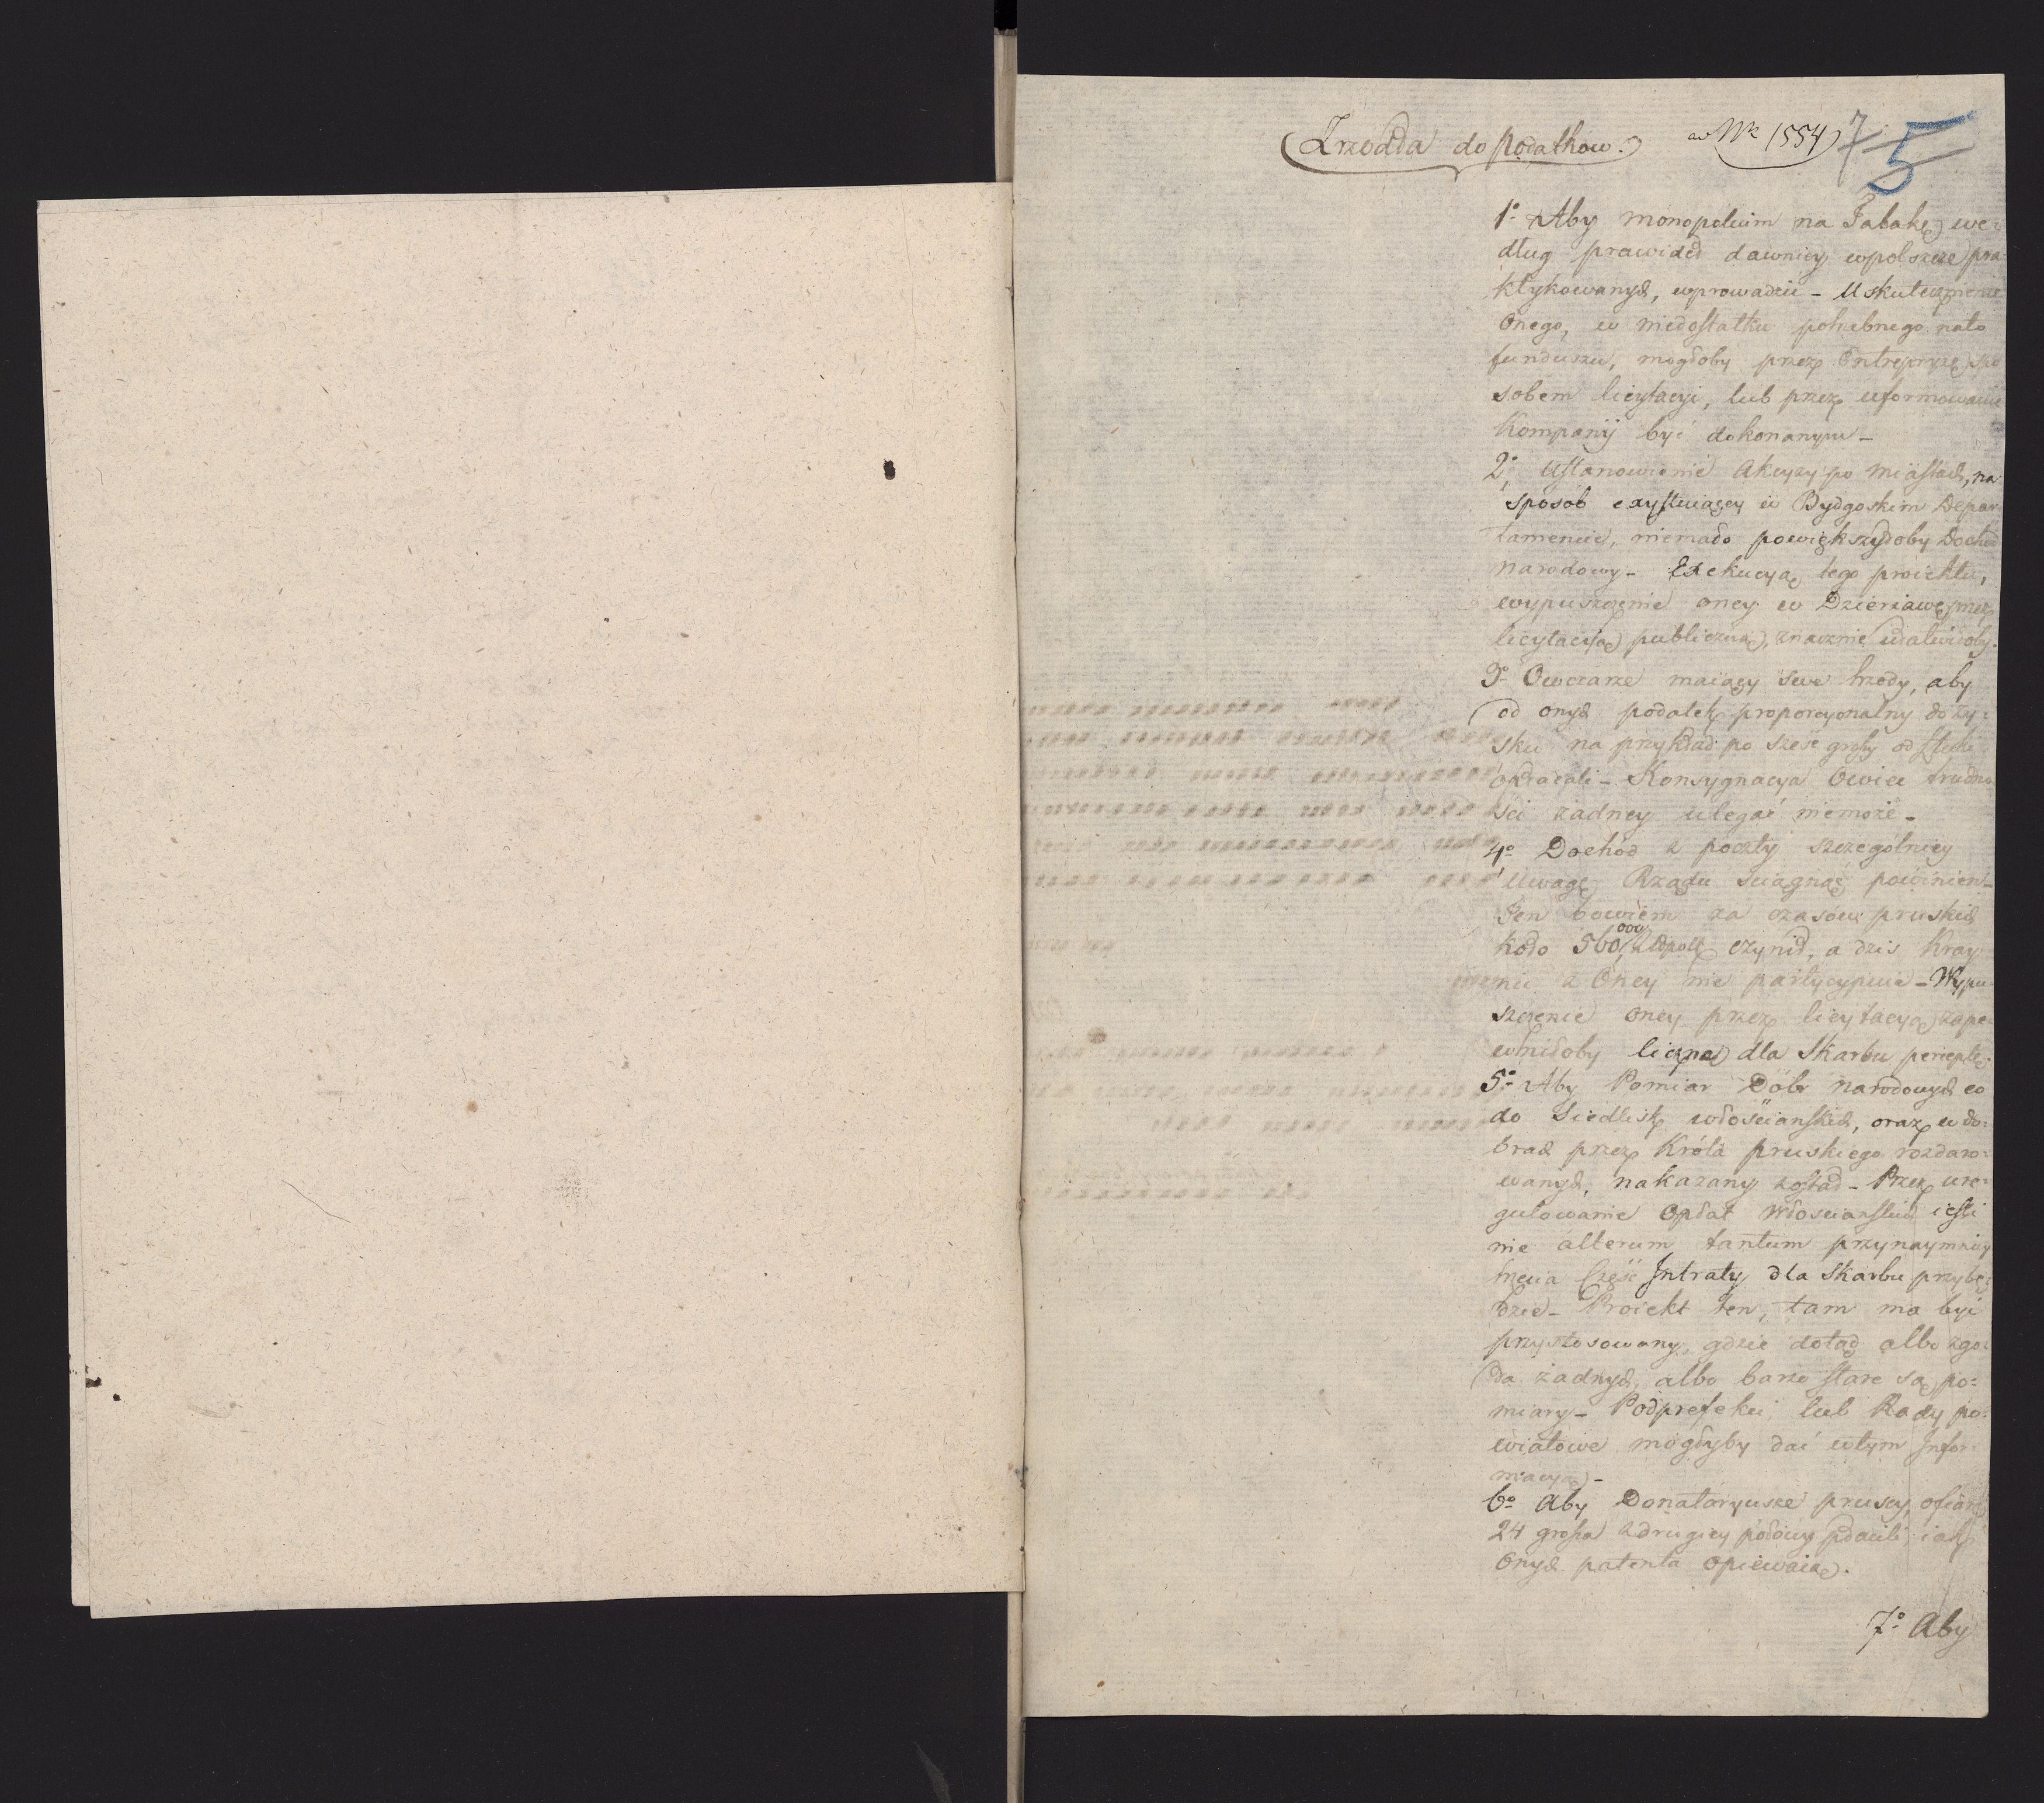 Zrzodła do Podatkow. ad Nr 1554 7 5
1º Aby monopolium na Tabakę we=
dług prawideł dawniey wpolszcze pra=
ktykowanych, wprowadzić - Uskutecznienie
onego, w niedostatku potrzebnego nato
funduszu, mogłoby przez Entrepryzę spo
sobem licytacyi, lub przez uformowanie
Kompanij być dokonanym -
2º Ustanowienie Akcyzy po Miastach, na
sposób exystuiącey w Bydgoskim Depar=
tamencie, niemało powiększyłoby Dochód
narodowy - Exekucyą tego proiektu,
wypuszczenie oney w Dzierżawę przez
licytacyą publiczną, znacznie ułatwiłoby.
3º Owczarze maiący swe trzody, aby
od onych podatek proporcyonalny do zy=
sku na przykład po sześć groszy od sztuki
opłacali - Konsygnacya Owiec trudno
ści żadney ulegać niemoże -
4º Dochód z poczty szczególniey
Uwagę Rządu sciągnąć powinien -
Ten bowiem za czasów pruskich
koło 560,000 złpolt czynił, a dzis Kray
nic z Oney nie partycypuie - Wypu=
szczenie oney przez licytacyą zape=
wniłoby liczną dla Skarbu perceptę.
5º Aby Pomiar Dóbr narodowych co
do Siedlisk włościańskich, oraz w do=
brach przez Króla pruskiego rozdaro=
wanych, nakazany został - Przez ure=
gulowanie Opłat Włosciańskich iesli
nie alterum tantum przynaymniey
trzecia Część Intraty dla Skarbu przybę=
dzie - Proiekt ten, tam ma być
przystosowany, gdzie dotąd albo zgo=
ła żadnych, albo barzo stare są po=
miary - Podprefekci, lub Rady po=
wiatowe mogłyby dać wtym Infor=
macyą -
6º Aby Donataryusze pruscy, ofiarę
24 grosza zdrugiey połowy płacili, iak
Onych patenta opiewaią.
7º Aby